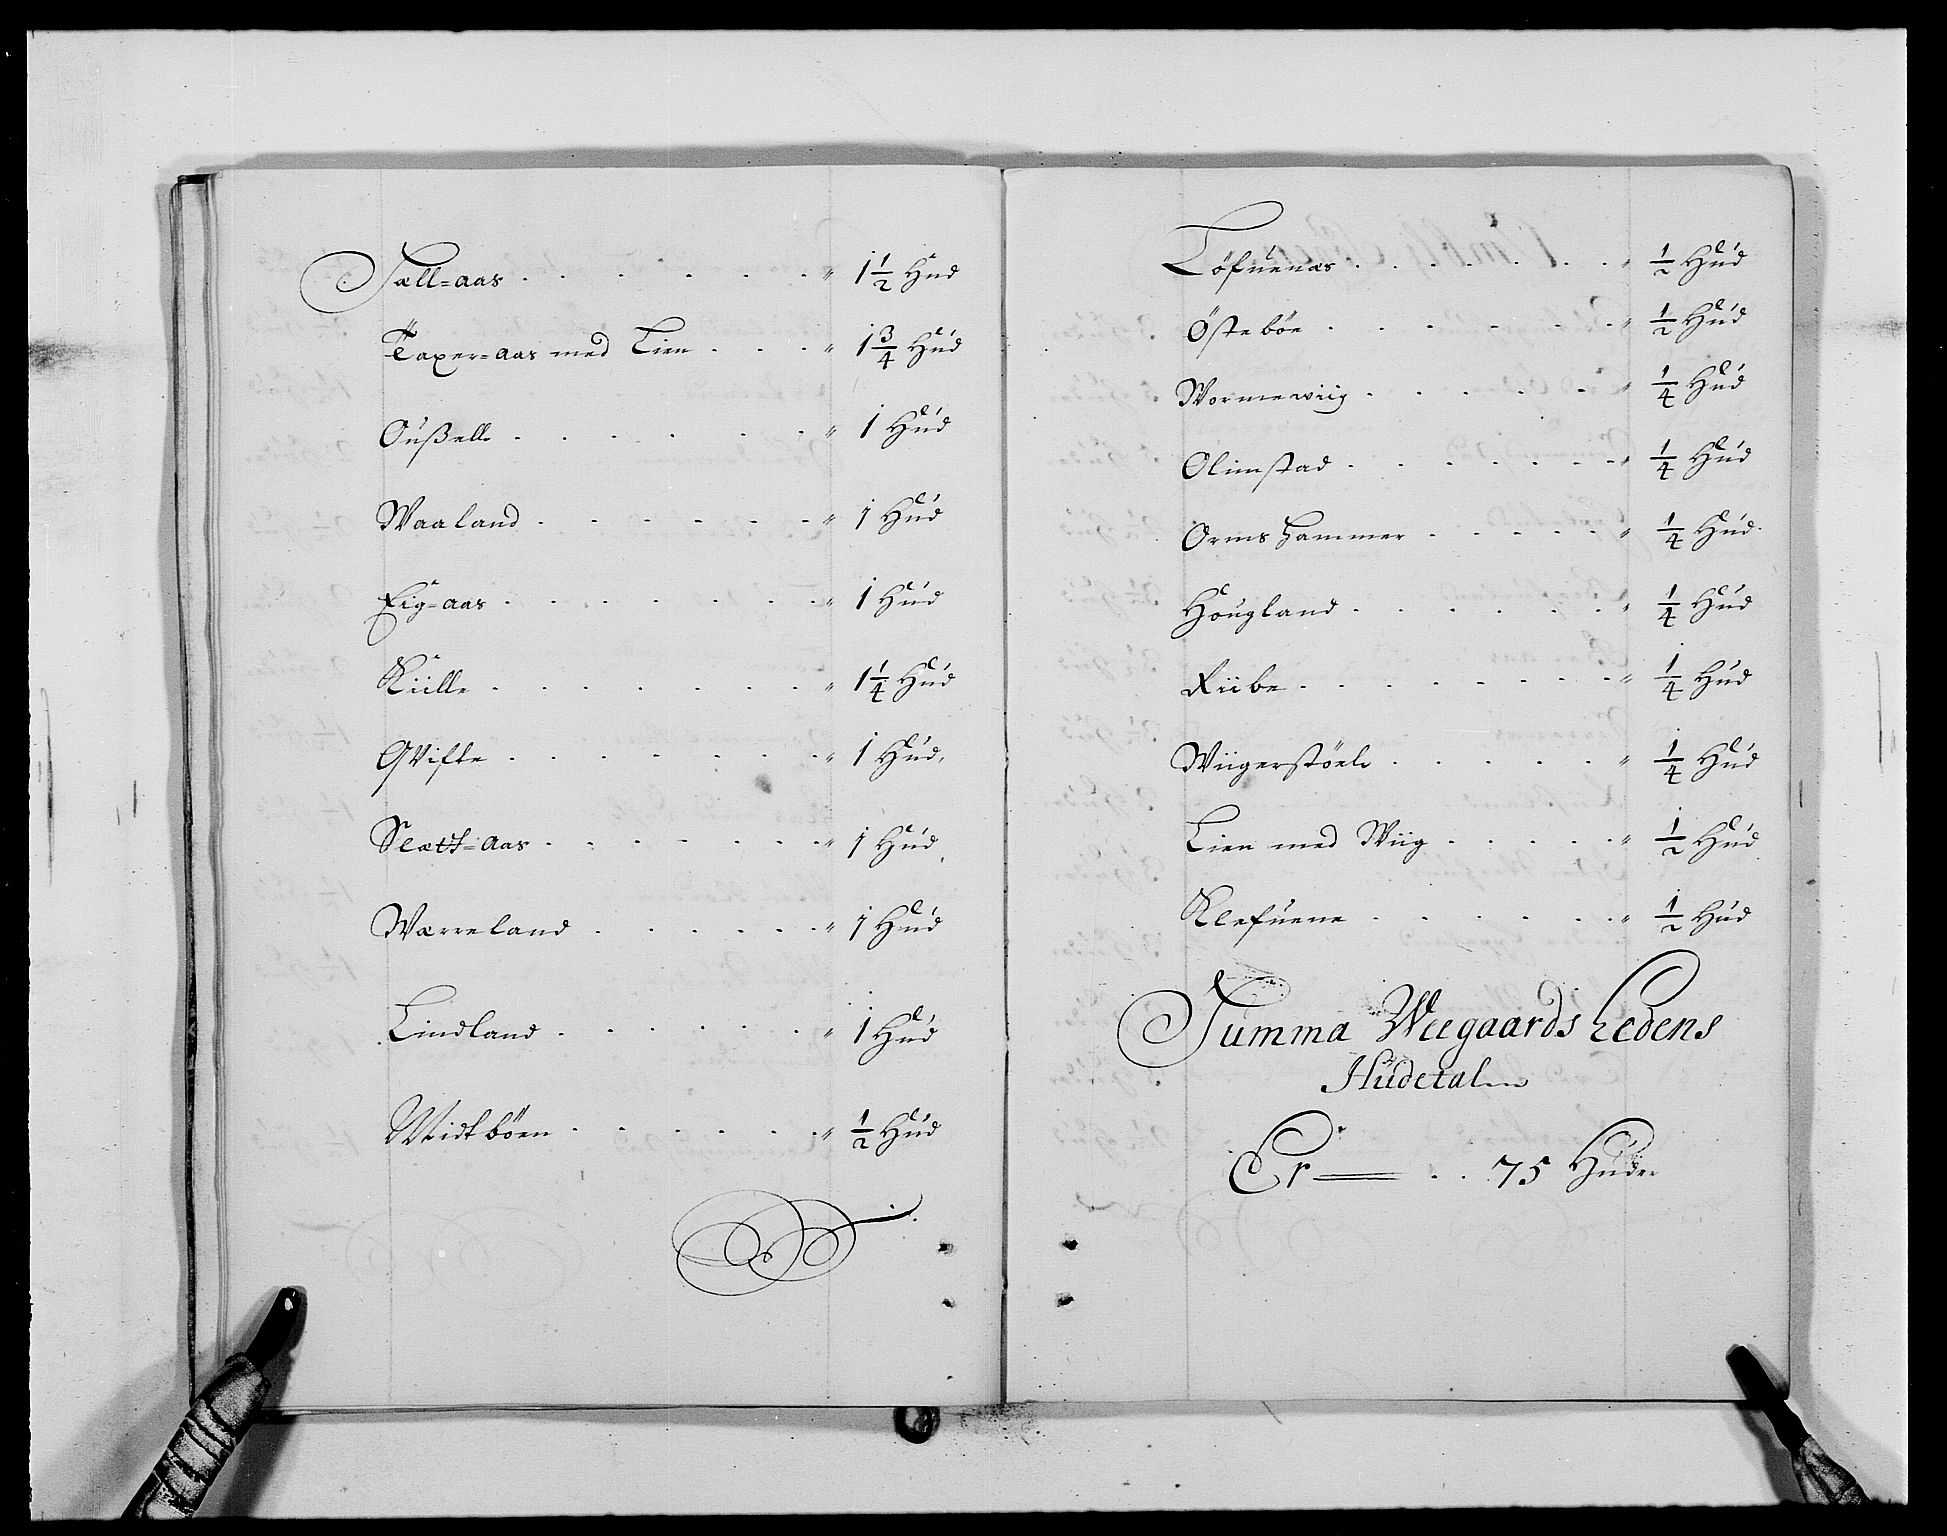 Sæll=aas . . . . . . " 1½ Hud
Taxer=aas med Lien . . . " 1¾ Hud
Oußell . . . . . . " 1 Hud
Waaland . . . . . . " 1 Hud
Eig=aas . . . . . . " 1 Hud
Külle . . . . . . " 1¼ Hud
Qvifte . . . . . . " 1 Hud,
Slætt=aas . . . . . . " 1 Hud,
Wærreland . . . . . . " 1 Hud
Lindland . . . . . . " 1 Hud
Midtböen . . . . . . " ½ Hud
Löfuenæs . . . . . . " ½ Hud
Östeböe . . . . . . " ½ Hud
Wormewiig . . . . . . " ¼ Hud
Olimstad . . . . . . " ¼ Hud
Ormshammer . . . . . " ¼ Hud.
Hougland . . . . . . " ¼ Hud
Riibe . . . . . . . " ¼ Hud
Wiigerstöell . . . . . " ¼ Hud
Lien med Wiig . . . . . " ½ Hud
Klefuene . . . . . . " ½ Hud
Summa Weegaards Ledens
Hudetalen
Er = . . 75 Huder